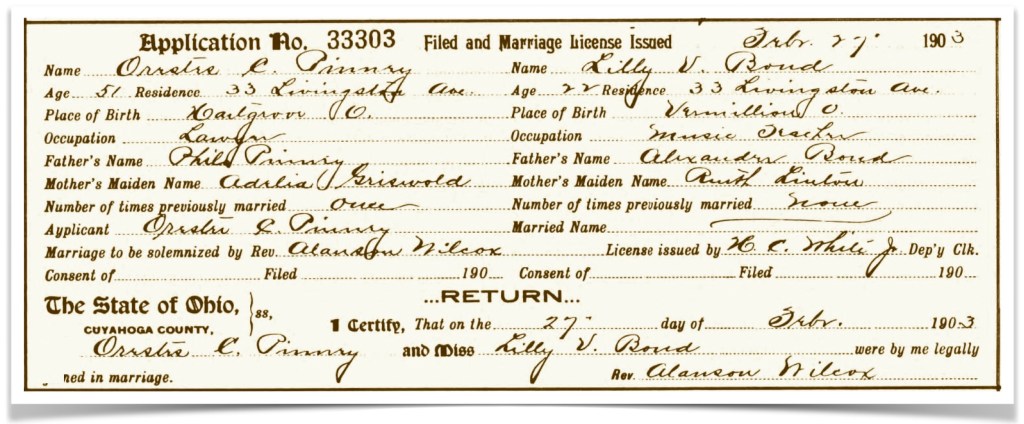 Application No. 33303 Filed and Marriage License Issued Febr. 27 1903
Name Orestes C. Pinney Name Lilly V. Bond
Age 51 Residence 33 Livingston Ave. Age 22 Residence 33 Livingston Ave.
Place of Birth Hartgrove O. Place of Birth Vermillion O.
Occupation Lawyer Occupation Music Teacher
Father's Name Philo Pinney Father's Name Alexander Bond
Mother's Maiden Name Adelia Griswold Mother's Maiden Name Ruth Linton
Number of times previously married once Number of times previously married none
Applicant Orestes C. Pinney Married Name
Marriage to be solemnized by Rev. Alanson Wilcox License issued by H. C. White Jr Dep'y Clk.
Consent of Filed 190 Consent of Filed 190
...RETURN...
The State of Ohio, ss,
CUYAHOGA COUNTY, I Certify, That on the 27 day of Febr. 1903
Orestes C. Pinney and Miss Lilly V. Bond were by me legally
ned in marriage. Rev. Alanson Wilcox